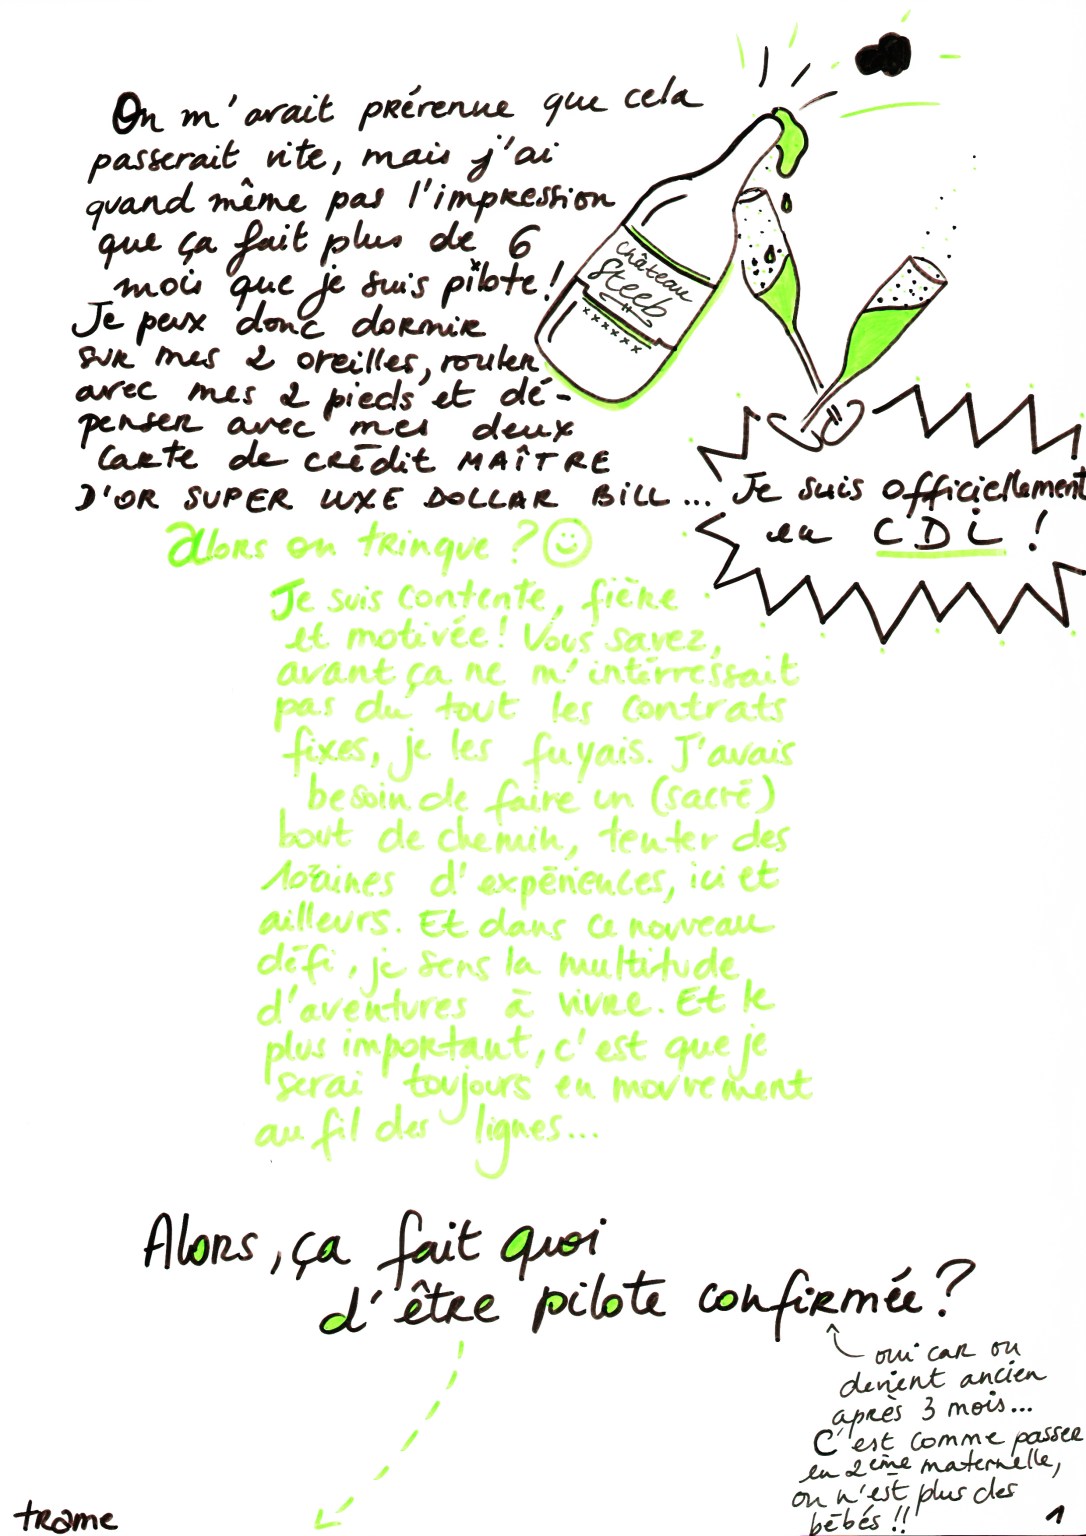 On m'avait prévenue que cela
passerait vite, mais j'ai
quand même pas l'impression
que ça fait plus de 6
mois que je suis pilote !
Je peux donc dormir
sur mes 2 oreilles, rouler
avec mes 2 pieds et dé-
penser avec mes deux
carte de crédit MAÎTRE
D'OR SUPER LUXE DOLLAR BILL...
Château
Steeb
xxxxxx
Je suis officiellement
en CDI !
Alors on trinque ? ☺
Je suis contente, fière
et motivée ! Vous savez,
avant ça ne m'intérressait
pas du tout les contrats
fixes, je les fuyais. J'avais
besoin de faire un (sacré)
bout de chemin, tenter des
10aines d'expériences, ici et
ailleurs. Et dans ce nouveau
défi, je sens la multitude
d'aventures à vivre. Et le
plus important, c'est que je
serai toujours en mouvement
au fil des lignes...
Alors, ça fait quoi
d'être pilote confirmée ?
oui car on
devient ancien
après 3 mois...
C'est comme passer
en 2ème maternelle,
on n'est plus des
bébés !!
trame
1